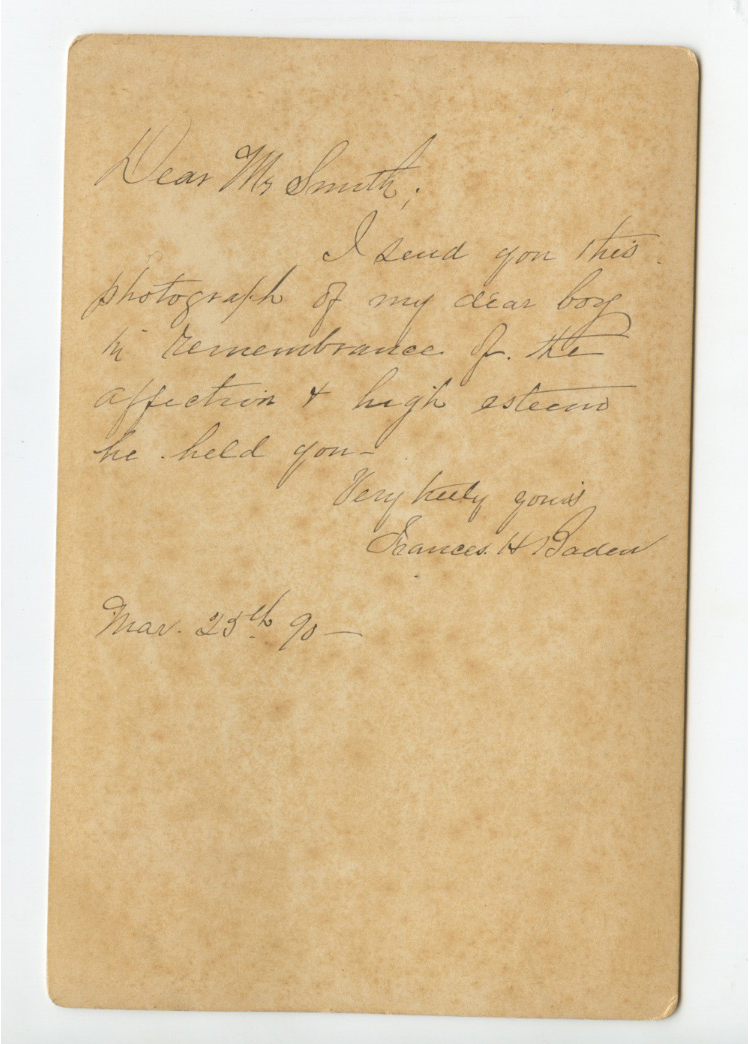 Dear Mr Smith,
I send you this
photograph of my dear boy
in remembrance of the
affection & high esteem
he held you –
Very truly yours
Frances H Baden
Mar. 25th 90 –